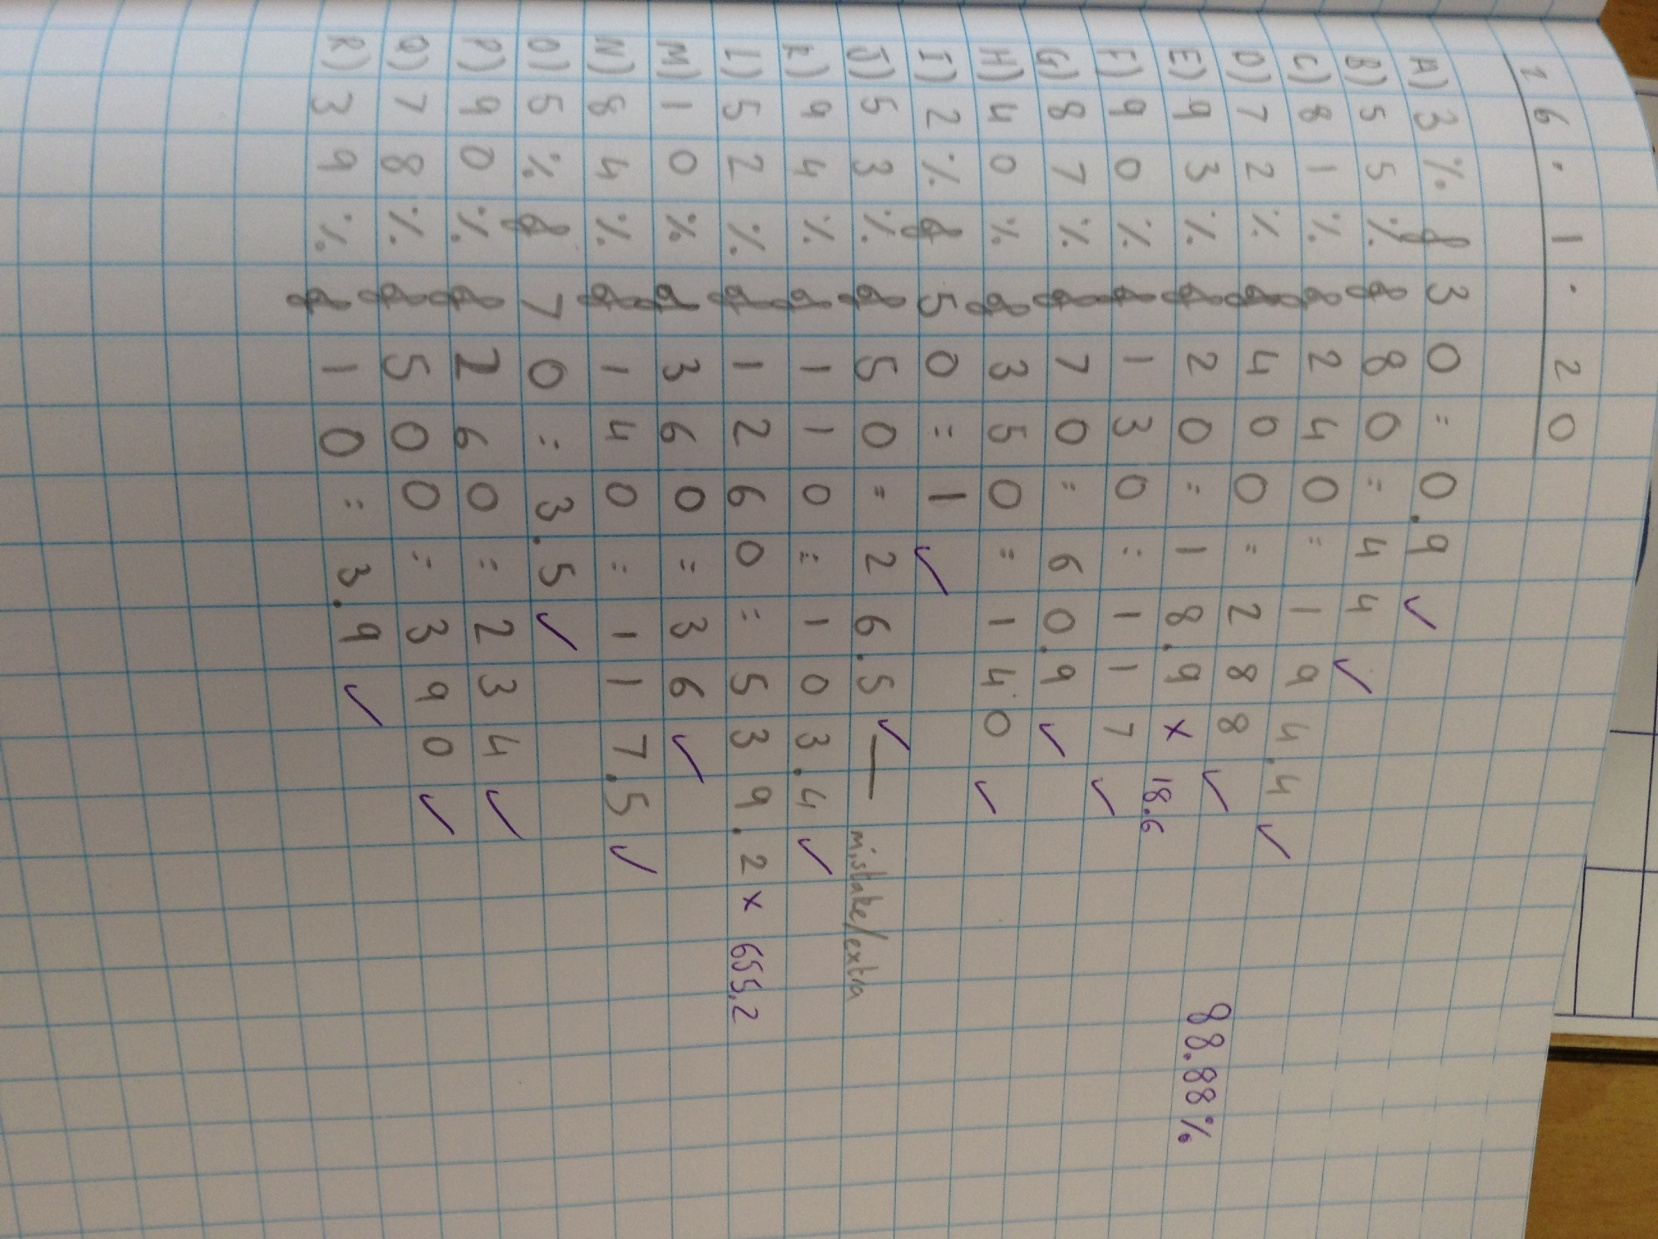 26.1.20
A) 3% of 30 = 0.9 ✓
B) 55% of 80 = 44 ✓
C) 81% of 240 = 194.4 ✓
D) 72% of 400 = 288 ✓
E) 93% of 20 = 18.9 x 18.6
88.88%
F) 90% of 130 = 117 ✓
G) 87% of 70 = 60.9 ✓
H) 40% of 350 = 140 ✓
I) 2% of 50 = 1 ✓
J) 53% of 50 = 26.5 ✓ — mistake/extra
K) 94% of 110 = 103.4 ✓
L) 52% of 1260 = 539.2 x 655.2
M) 10% of 360 = 36 ✓
N) 84% of 140 = 117.5 ✓
O) 5% of 70 = 3.5 ✓
P) 90% of 260 = 234 ✓
Q) 78% of 500 = 390 ✓
R) 39% of 10 = 3.9 ✓